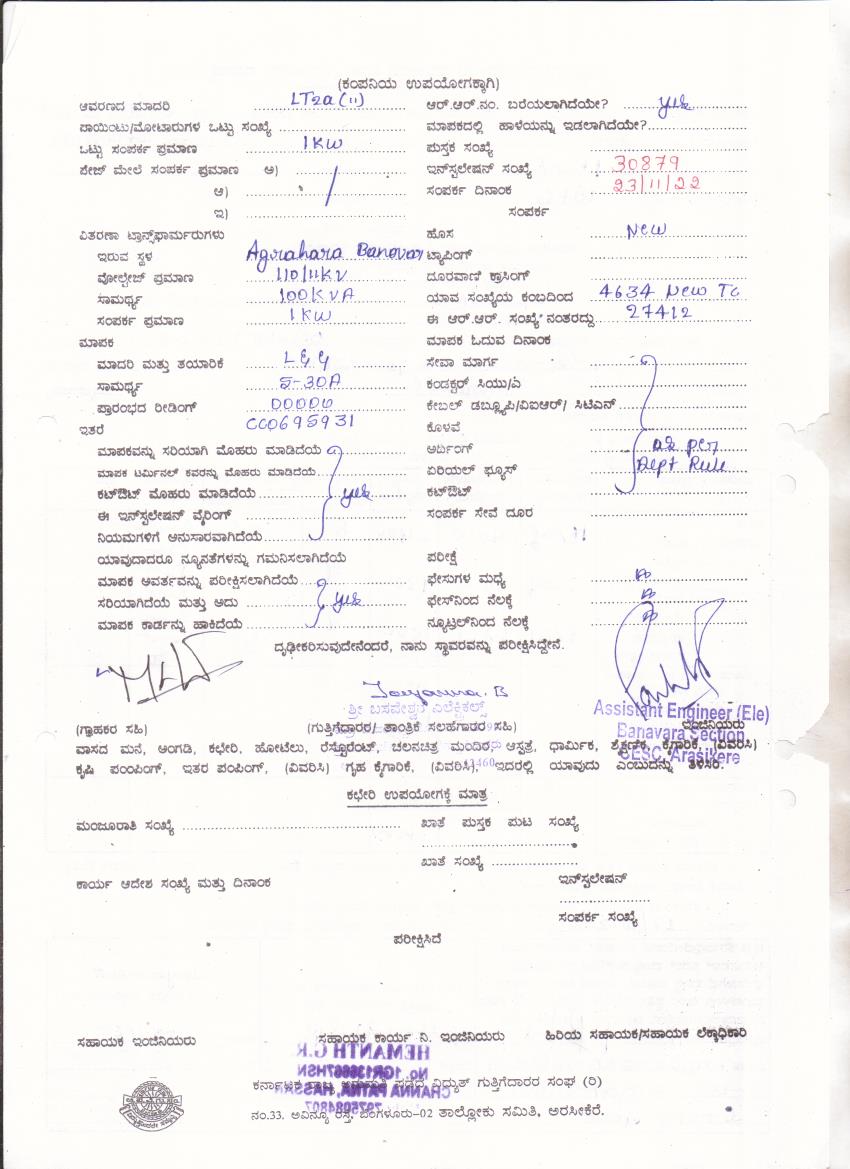 (ಕಂಪನಿಯ ಉಪಯೋಗಕ್ಕಾಗಿ)
ಆವರಣದ ಮಾದರಿ LT2a (ii)
ಪಾಯಿಂಟು/ಮೋಟಾರುಗಳ ಒಟ್ಟು ಸಂಖ್ಯೆ
ಒಟ್ಟು ಸಂಪರ್ಕ ಪ್ರಮಾಣ 1 KW
ಪೇಜ್ ಮೇಲೆ ಸಂಪರ್ಕ ಪ್ರಮಾಣ ಅ)
ಆ)
ಇ)
ವಿತರಣಾ ಟ್ರಾನ್ಸ್‌ಫಾರ್ಮರುಗಳು
ಇರುವ ಸ್ಥಳ Agrahara Banavar
ವೋಲ್ಟೇಜ್ ಪ್ರಮಾಣ 110/11KV
ಸಾಮರ್ಥ್ಯ 100KVA
ಸಂಪರ್ಕ ಪ್ರಮಾಣ 1 KW
ಮಾಪಕ
ಮಾದರಿ ಮತ್ತು ತಯಾರಿಕೆ L&G
ಸಾಮರ್ಥ್ಯ 5-30A
ಪ್ರಾರಂಭದ ರೀಡಿಂಗ್ 00000
ಇತರೆ CC0695931
ಮಾಪಕವನ್ನು ಸರಿಯಾಗಿ ಮೊಹರು ಮಾಡಿದೆಯೆ
ಮಾಪಕ ಟರ್ಮಿನಲ್ ಕವರನ್ನು ಮೊಹರು ಮಾಡಿದೆಯೆ
ಕಟ್‌ಔಟ್ ಮೊಹರು ಮಾಡಿದೆಯೆ yes
ಈ ಇನ್‌ಸ್ಟಲೇಷನ್ ವೈರಿಂಗ್
ನಿಯಮಗಳಿಗೆ ಅನುಸಾರವಾಗಿದೆಯೆ
ಯಾವುದಾದರೂ ನ್ಯೂನತೆಗಳನ್ನು ಗಮನಿಸಲಾಗಿದೆಯೆ
ಮಾಪಕ ಆವರ್ತವನ್ನು ಪರೀಕ್ಷಿಸಲಾಗಿದೆಯೆ
ಸರಿಯಾಗಿದೆಯೆ ಮತ್ತು ಅದು yes
ಮಾಪಕ ಕಾರ್ಡನ್ನು ಹಾಕಿದೆಯೆ
ಆರ್.ಆರ್.ನಂ. ಬರೆಯಲಾಗಿದೆಯೇ? yes
ಮಾಪಕದಲ್ಲಿ ಹಾಳೆಯನ್ನು ಇಡಲಾಗಿದೆಯೇ?
ಪುಸ್ತಕ ಸಂಖ್ಯೆ
ಇನ್‌ಸ್ಟಲೇಷನ್ ಸಂಖ್ಯೆ 30879
ಸಂಪರ್ಕ ದಿನಾಂಕ 23/11/22
ಸಂಪರ್ಕ
ಹೊಸ New
ಟ್ಯಾಪಿಂಗ್
ದೂರವಾಣಿ ಕ್ರಾಸಿಂಗ್
ಯಾವ ಸಂಖ್ಯೆಯ ಕಂಬದಿಂದ 4634 New Tc
ಈ ಆರ್.ಆರ್. ಸಂಖ್ಯೆ ನಂತರದ್ದು 27412
ಮಾಪಕ ಓದುವ ದಿನಾಂಕ
ಸೇವಾ ಮಾರ್ಗ
ಕಂಡಕ್ಟರ್ ಸಿಯು/ಎ
ಕೇಬಲ್ ಡಬ್ಲ್ಯೂಪಿ/ವಿಐಆರ್/ ಸಿಟಿಎಸ್
ಕೊಳವೆ
ಅರ್ದಿಂಗ್ as per
ಏರಿಯಲ್ ಫ್ಯೂಸ್ Dept Rule
ಕಟ್‌ಔಟ್
ಸಂಪರ್ಕ ಸೇವೆ ದೂರ
ಪರೀಕ್ಷೆ
ಫೇಸುಗಳ ಮಧ್ಯೆ
ಫೇಸ್‌ನಿಂದ ನೆಲಕ್ಕೆ
ನ್ಯೂಟ್ರಲ್‌ನಿಂದ ನೆಲಕ್ಕೆ
ದೃಢೀಕರಿಸುವುದೇನೆಂದರೆ, ನಾನು ಸ್ಥಾವರವನ್ನು ಪರೀಕ್ಷಿಸಿದ್ದೇನೆ.
ಶ್ರೀ ಬಸವೇಶ್ವರ ಎಲೆಕ್ಟ್ರಿಕಲ್ಸ್
Assistant Engineer (Ele)
Banavara Section
CESC, Arasikere
(ಗ್ರಾಹಕರ ಸಹಿ) (ಗುತ್ತಿಗೆದಾರರ/ ತಾಂತ್ರಿಕ ಸಲಹೆಗಾರರ ಸಹಿ) ಇಂಜಿನಿಯರು
ವಾಸದ ಮನೆ, ಅಂಗಡಿ, ಕಛೇರಿ, ಹೋಟೆಲು, ರೆಸ್ಟೊರೆಂಟ್, ಚಲನಚಿತ್ರ ಮಂದಿರ, ಆಸ್ಪತ್ರೆ, ಧಾರ್ಮಿಕ, ಶೈಕ್ಷಣಿಕ, ಕೈಗಾರಿಕೆ, (ವಿವರಿಸಿ)
ಕೃಷಿ ಪಂಪಿಂಗ್, ಇತರ ಪಂಪಿಂಗ್, (ವಿವರಿಸಿ) ಗೃಹ ಕೈಗಾರಿಕೆ, (ವಿವರಿಸಿ), ಇದರಲ್ಲಿ ಯಾವುದು ಎಂಬುದನ್ನು ತಿಳಿಸಿರಿ.
ಕಛೇರಿ ಉಪಯೋಗಕ್ಕೆ ಮಾತ್ರ
ಮಂಜೂರಾತಿ ಸಂಖ್ಯೆ ಖಾತೆ ಪುಸ್ತಕ ಪುಟ ಸಂಖ್ಯೆ
ಖಾತೆ ಸಂಖ್ಯೆ
ಕಾರ್ಯ ಆದೇಶ ಸಂಖ್ಯೆ ಮತ್ತು ದಿನಾಂಕ ಇನ್‌ಸ್ಟಲೇಷನ್
ಸಂಪರ್ಕ ಸಂಖ್ಯೆ
ಪರೀಕ್ಷಿಸಿದೆ
ಸಹಾಯಕ ಇಂಜಿನಿಯರು ಸಹಾಯಕ ಕಾರ್ಯ ನಿ. ಇಂಜಿನಿಯರು ಹಿರಿಯ ಸಹಾಯಕ/ಸಹಾಯಕ ಲೆಕ್ಕಾಧಿಕಾರಿ
HEMANTH G.R
No. 1GR136667HSN
CHANNA PATNA, HASSAN
7975084807
ಕರ್ನಾಟಕ ರಾಜ್ಯ ಅನುಮತಿ ಪಡೆದ ವಿದ್ಯುತ್ ಗುತ್ತಿಗೆದಾರರ ಸಂಘ (ರಿ)
ನಂ.33. ಅವಿನ್ಯೂ ರಸ್ತೆ, ಬೆಂಗಳೂರು-02 ತಾಲ್ಲೋಕು ಸಮಿತಿ, ಅರಸೀಕೆರೆ.